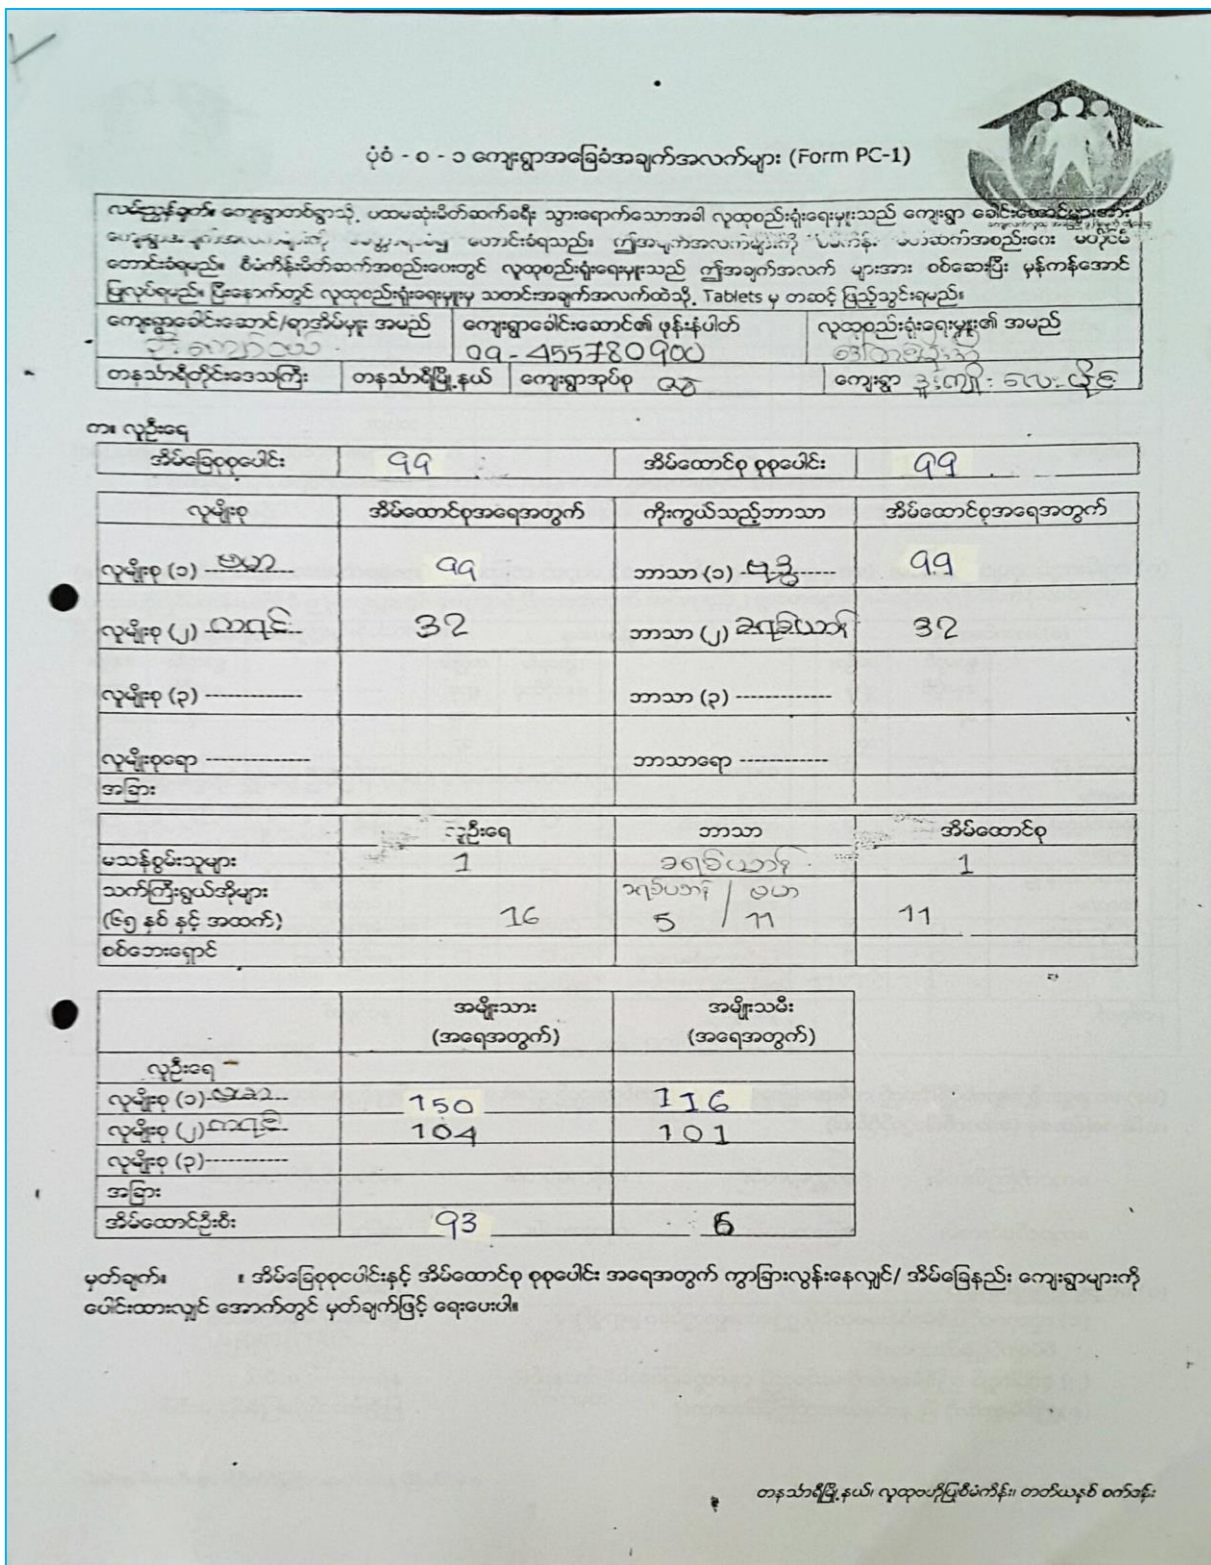 ပုံစံ - စ - ၁ ကျေးရွာအခြေခံအချက်အလက်များ (Form PC-1)
လမ်းညွှန်ချက်။ ကျေးရွာတစ်ရွာသို့ ပထမဆုံးမိတ်ဆက်ခရီး သွားရောက်သောအခါ လူထုစည်းရုံးရေးမှူးသည် ကျေးရွာ ခေါင်းဆောင်များအား
တောင်းခံရသည်။ ဤအချက်အလက်များကို
တောင်းခံရမည်။ စီမံကိန်းမိတ်ဆက်အစည်းဝေးတွင် လူထုစည်းရုံးရေးမှူးသည် ဤအချက်အလက် များအား စစ်ဆေးပြီး မှန်ကန်အောင်
ပြုလုပ်ရမည်။ ပြီးနောက်တွင် လူထုစည်းရုံးရေးမှူးမှ သတင်းအချက်အလက်ထဲသို့ Tablets မှ တဆင့် ဖြည့်သွင်းရမည်။
ကျေးရွာခေါင်းဆောင်/ရာအိမ်မှူး အမည် ကျေးရွာခေါင်းဆောင်၏ ဖုန်းနံပါတ် လူထုစည်းရုံးရေးမှူး၏ အမည်
09-455780900
တနင်္သာရီတိုင်းဒေသကြီး တနင်္သာရီမြို့နယ် ကျေးရွာအုပ်စု ကျေးရွာ
က။ လူဦးရေ
အိမ်ခြေစုစုပေါင်း 99 အိမ်ထောင်စု စုစုပေါင်း 99
လူမျိုးစု အိမ်ထောင်စုအရေအတွက် ကိုးကွယ်သည့်ဘာသာ အိမ်ထောင်စုအရေအတွက်
လူမျိုးစု (၁) ဗမာ 99 ဘာသာ (၁) ဗုဒ္ဓ 99
လူမျိုးစု (၂) ကရင် 32 ဘာသာ (၂) ခရစ်ယာန် 32
လူမျိုးစု (၃) ------------ ဘာသာ (၃) ------------
လူမျိုးစုရော ------------ ဘာသာရော ------------
အခြား
လူဦးရေ ဘာသာ အိမ်ထောင်စု
မသန်စွမ်းသူများ 1 ခရစ်ယာန် 1
သက်ကြီးရွယ်အိုများ ခရစ်ယာန် / ဗမာ
(၆၅ နှစ် နှင့် အထက်) 16 5 / 11 11
စစ်ဘေးရှောင်
အမျိုးသား အမျိုးသမီး
(အရေအတွက်) (အရေအတွက်)
လူဦးရေ
လူမျိုးစု (၁) ဗမာ 150 116
လူမျိုးစု (၂) ကရင် 104 101
လူမျိုးစု (၃)-----------
အခြား
အိမ်ထောင်ဦးစီး 93 6
မှတ်ချက်။ ။ အိမ်ခြေစုစုပေါင်းနှင့် အိမ်ထောင်စု စုစုပေါင်း အရေအတွက် ကွာခြားလွန်းနေလျှင်/ အိမ်ခြေနည်း ကျေးရွာများကို
ပေါင်းထားလျှင် အောက်တွင် မှတ်ချက်ဖြင့် ရေးပေးပါ။
တနင်္သာရီမြို့နယ်၊ လူထုဗဟိုပြုစီမံကိန်း၊ တတိယနှစ် စက်ဝန်း